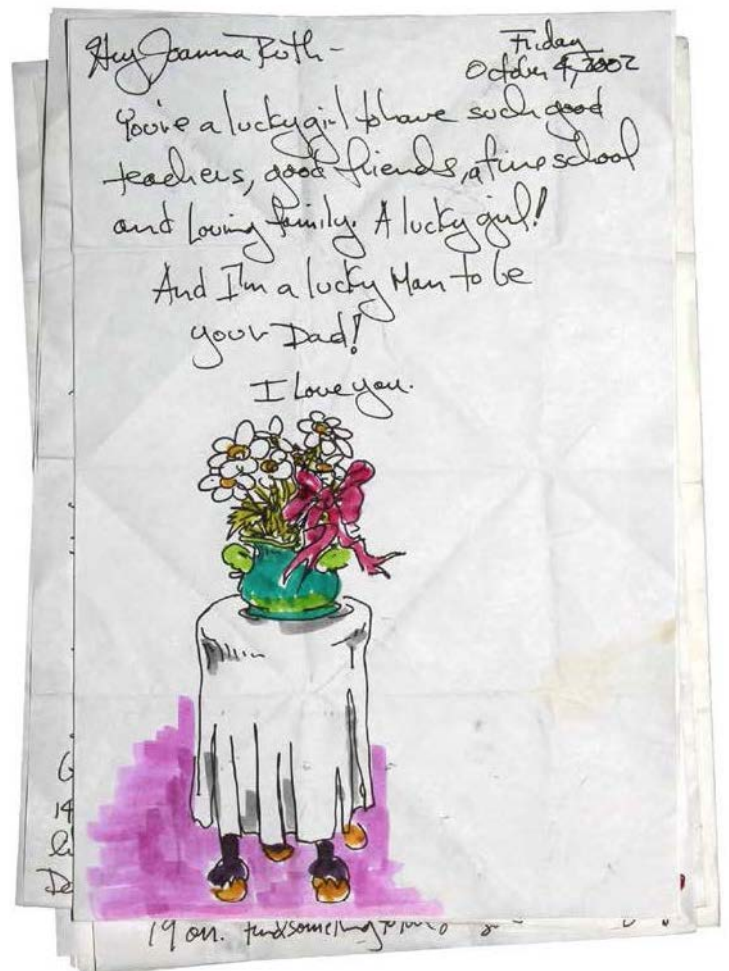 Hey Joanna Ruth-
Friday
October 4, 2002
You're a lucky girl to have such good
teachers, good friends, a fine school
and Loving family. A lucky girl!
And I'm a lucky Man to be
your Dad!
I Love you.
G
14
li
De
19 on. find something to